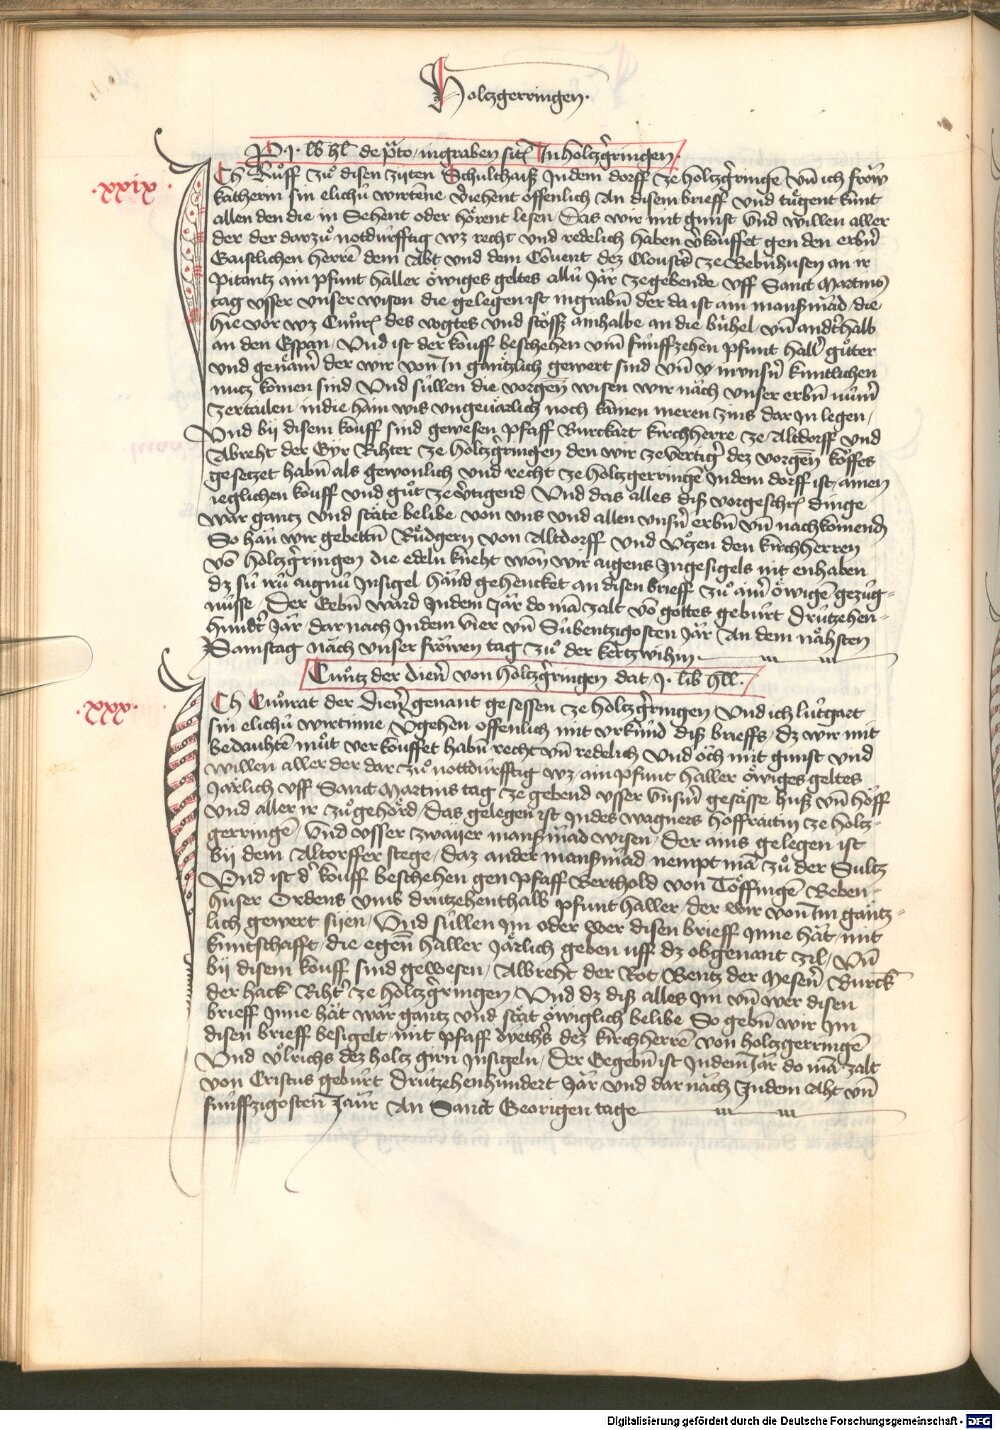 Holtzgerringen·
P I · lb hl de p̃to ingraben sit̃ In holtzg̃ringen·
·xxix·
Ich Ruͦff zuͦ disen ziten Schulthaiß Indem dorff ze holtzg̃ringẽ vñ ich frow
katherin sin elichü wirtẽne v̾iehent offenlich An disem brieff vnd tuͤgent kunt
allen den die in Sehent oder hoͤrent lesen Das wir mit gunst vnd willen aller
der der darzuͦ notdürfftig wz recht vnd redelich haben v̾kouffet gen den erbñ
Gaistlichen herrẽ dem Abt vnd dem Couent dez Closters ze Bebẽhusen an ir
pitantz ain pfunt haller oͤwiges geltes allü Jar zegebende vff Sanct martins
tag vsser vnser wisen die gelegen ist ingrabñ der da ist ain manßmad die
hie vor wz Cuͦnr̃ des vogtes vnd stoͤsset ainhalbe an die buͤhel vñ andert̾halb
an den Espan Vnd ist der kouff beschehen vm̃ fünffzehen pfunt hall̾ guͦter
vnd genaͤm̾ der wir von In gaͤntzlich gewert sind vñ v invnsñ kuntlichen
nutz komen sind Vnd süllen die vorgeñ wisen wir nach vnser erbñ num̃
zertailen indie hain wis vngeuaͤrlich noch kainen meren zins dar In legen
Vnd bij disem kouff sind gewesen pfaff Burckart kirchherre ze Altdorff vnd
Abreht der Eyr Rihter ze holtzg̃ringen den wir ze vertig̾ dez vorgeñ koͧffes
gesetzet habñ als gewonlich vnd recht ze holtzgerringẽ Indem dorff ist ainen
ieglichen kouff vnd guͦt ze v̾tigend Vnd das alles diß vorgeschr̃ dinge
war gantz vnd staͤte belibe von vns vnd allen vnsñ erbñ vñ nachkomend
So han wir gebettñ Ruͤdgern von Altdorff vnd Vtzen den kirchherren
võ holtzg̃ringen die edeln kneht won wir aigens Ingesigels nit enhaben
dz sü irü aignü Insigel hand gehencket an disen brieff zuͦ aim̾ oͤwigẽ gezüg-
nüsse Der Gebñ ward Indem Jar do mã zalt võ gottes gebürt Drützehen-
hundt̾ Jar dar nach Indem vier vñ Subentzigosten Jar An dem naͤhsten
Samstag nach vnser froͧwen tag zuͦ der kertzwihin
Cuͦntz der dieñ von holtzg̃ringen dat I· lib hll·
·xxx·
Ich Cuͦnrat der dien̾ genant gesessen ze holtzg̃ringen Vnd ich lütgart
sin elichü wirtinne V̾gehen offenlich mit vrkünd diß brieffs dz wir mit
bedauhtẽ muͦt verkouffet habñ recht vñ redelich vnd oͧch mit gunst vnd
willen aller der dar zuͦ nottdürfftig wz ain pfunt haller oͤwiges geltes
Jaͤrlich vff Sanct martins tag ze gebend vsser vnsm̾ gesaͤsse huß vñ hoff
vnd aller ir zuͦgehoͤrd Das gelegen ist Indes wagners hoffraitin ze holtz-
gerringẽ Vnd vsser zwaijer manßmad wisen Der ains gelegen ist
bij dem Altorffer stege Daz ander manßmad nempt mã zuͦ der Sultz
Vnd ist d̾ kouff beschehen gen pfaff Berthold von Toͤffingẽ Beben-
huser Ordens vmb drützehenthalb pfunt haller der wir von Im gaͤntz-
lich gewert sijen Vnd süllen Im oder wer disen brieff Inne hat mit
kuntschafft die egeñ haller Jaͤrlich geben vff dz obgenant zil Vñ
bij disem kouff sind gewesen Albreht der Rot Bentz der mesen̾ Burck̃
der hack Riht̾ ze holtzg̃ringen Vnd dz diß alles Im vñ wer disen
brieff Inne hat war gantz vnd staͤt oͤwiglich belibe So gebñ wir Im
disen brieff besigelt mit pfaff dyethers dez kirchherrẽ von holtzgerringẽ
Vnd voͤlrichs dez holtz girñ Insigeln Der Gegebñ ist Indem Jar do mã zalt
von Cristus gebürt Drützehenhundert Jar vnd dar nach Indem Aht vñ
fünffzigosten Jaur An Sanct Georigen tage
Digitalisierung gefördert durch die Deutsche Forschungsgemeinschaft - DFG